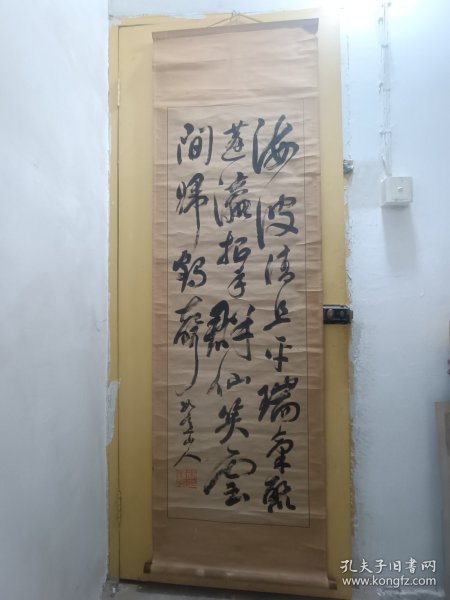 海波清且平瑞氣
蓬瀛招手群仙笑雲
間歸鶴聲
山人
孔夫子旧书网
www.kongfz.com